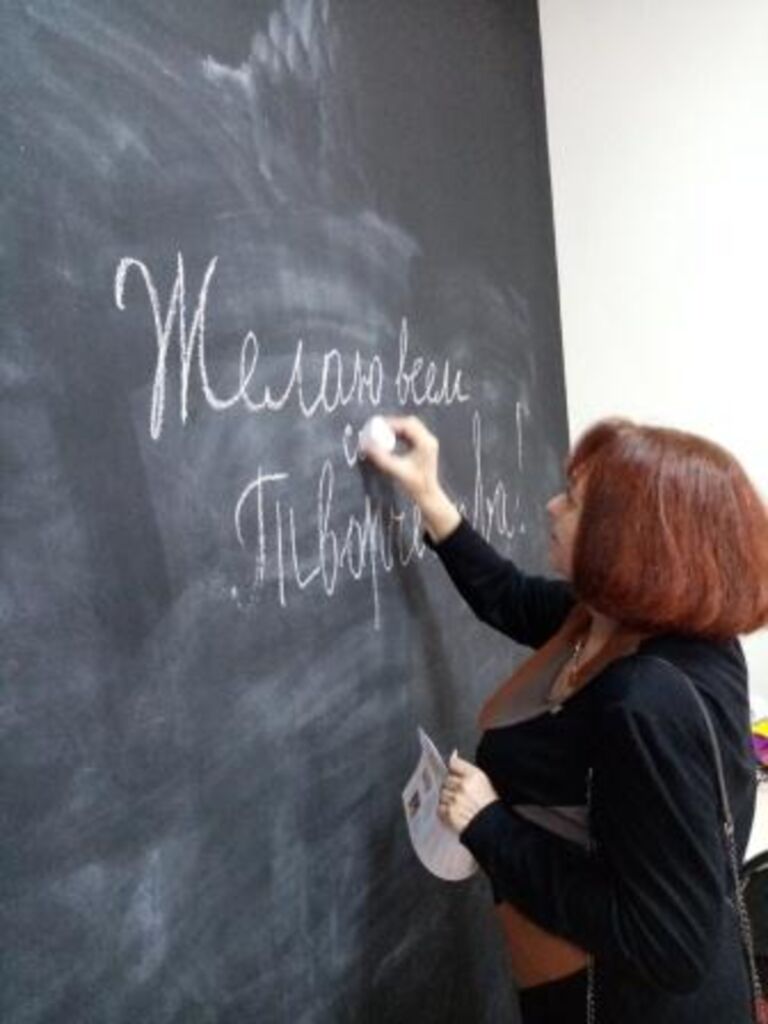 Желаю всем
Творчества!